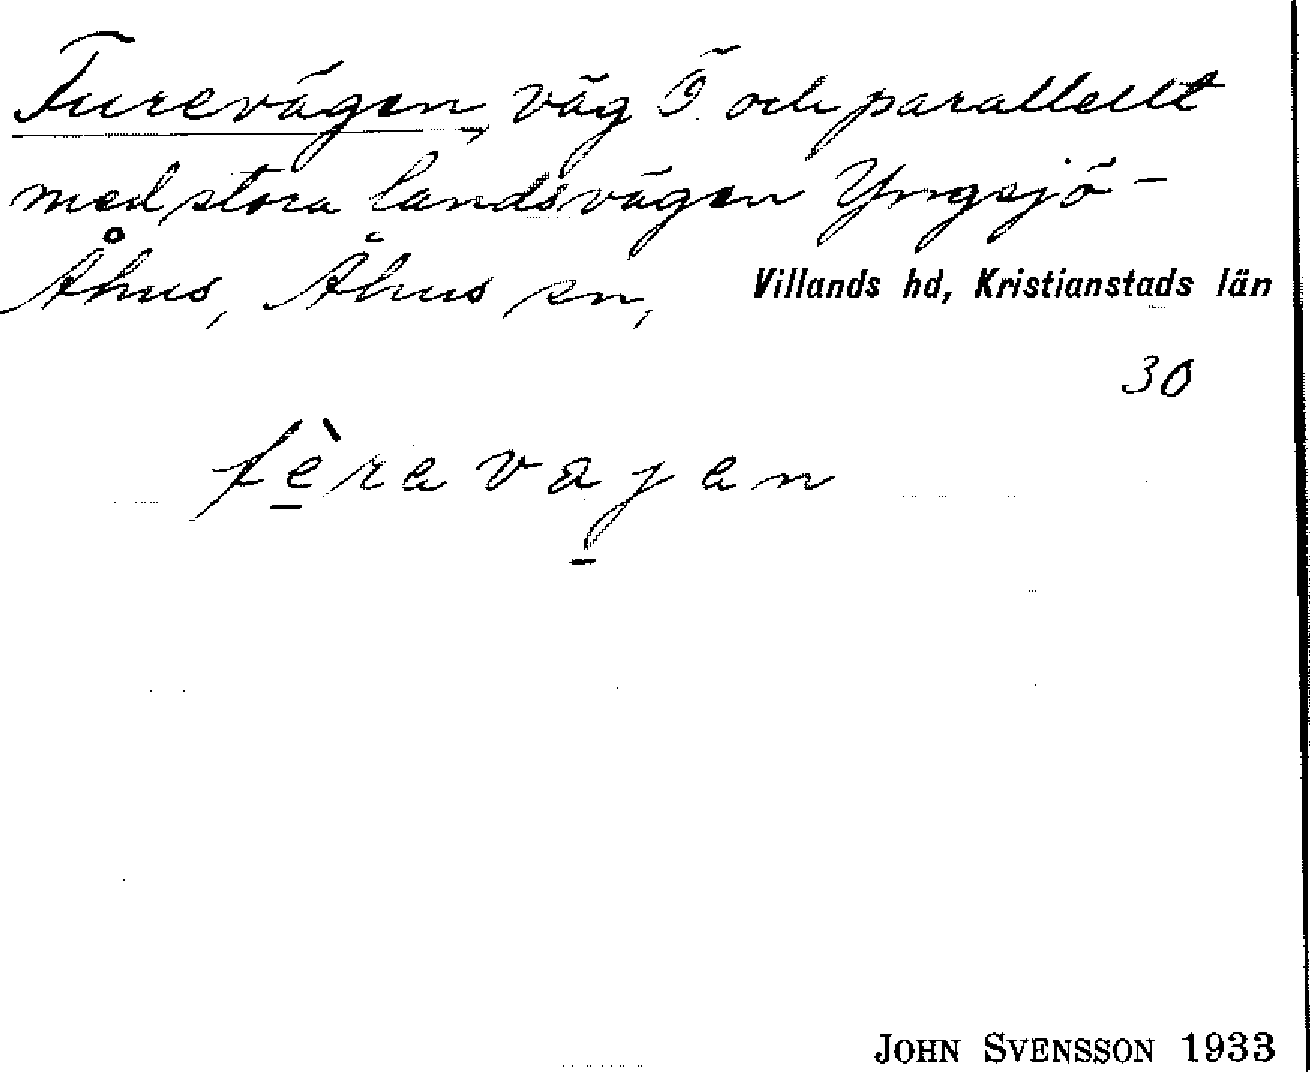 Furevägen, väg Ö. och parallellt
med stora landsvägen Yngsjö -
Åhus, Åhus sn, Villands hd, Kristianstads län
30
fèravagen
JOHN SVENSSON 1933